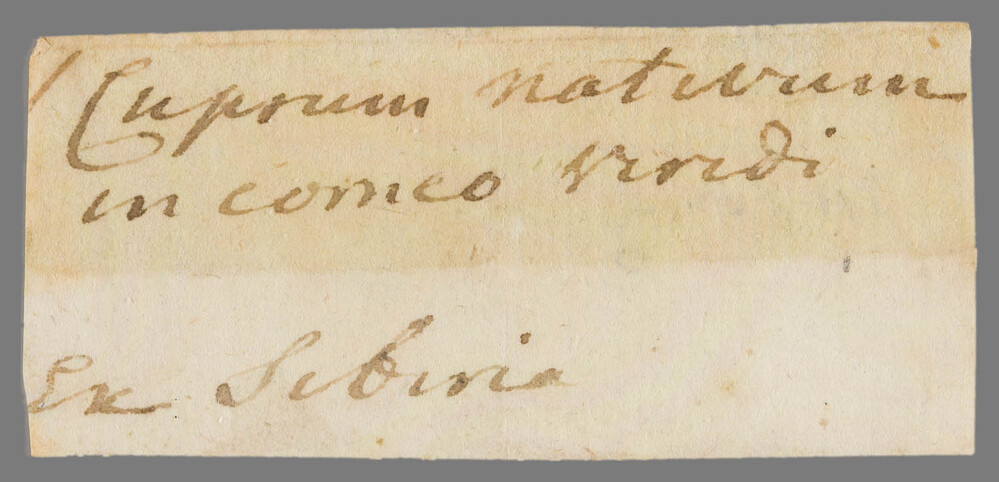 Cuprum nativum
in corneo viridi
Ex Sibiria